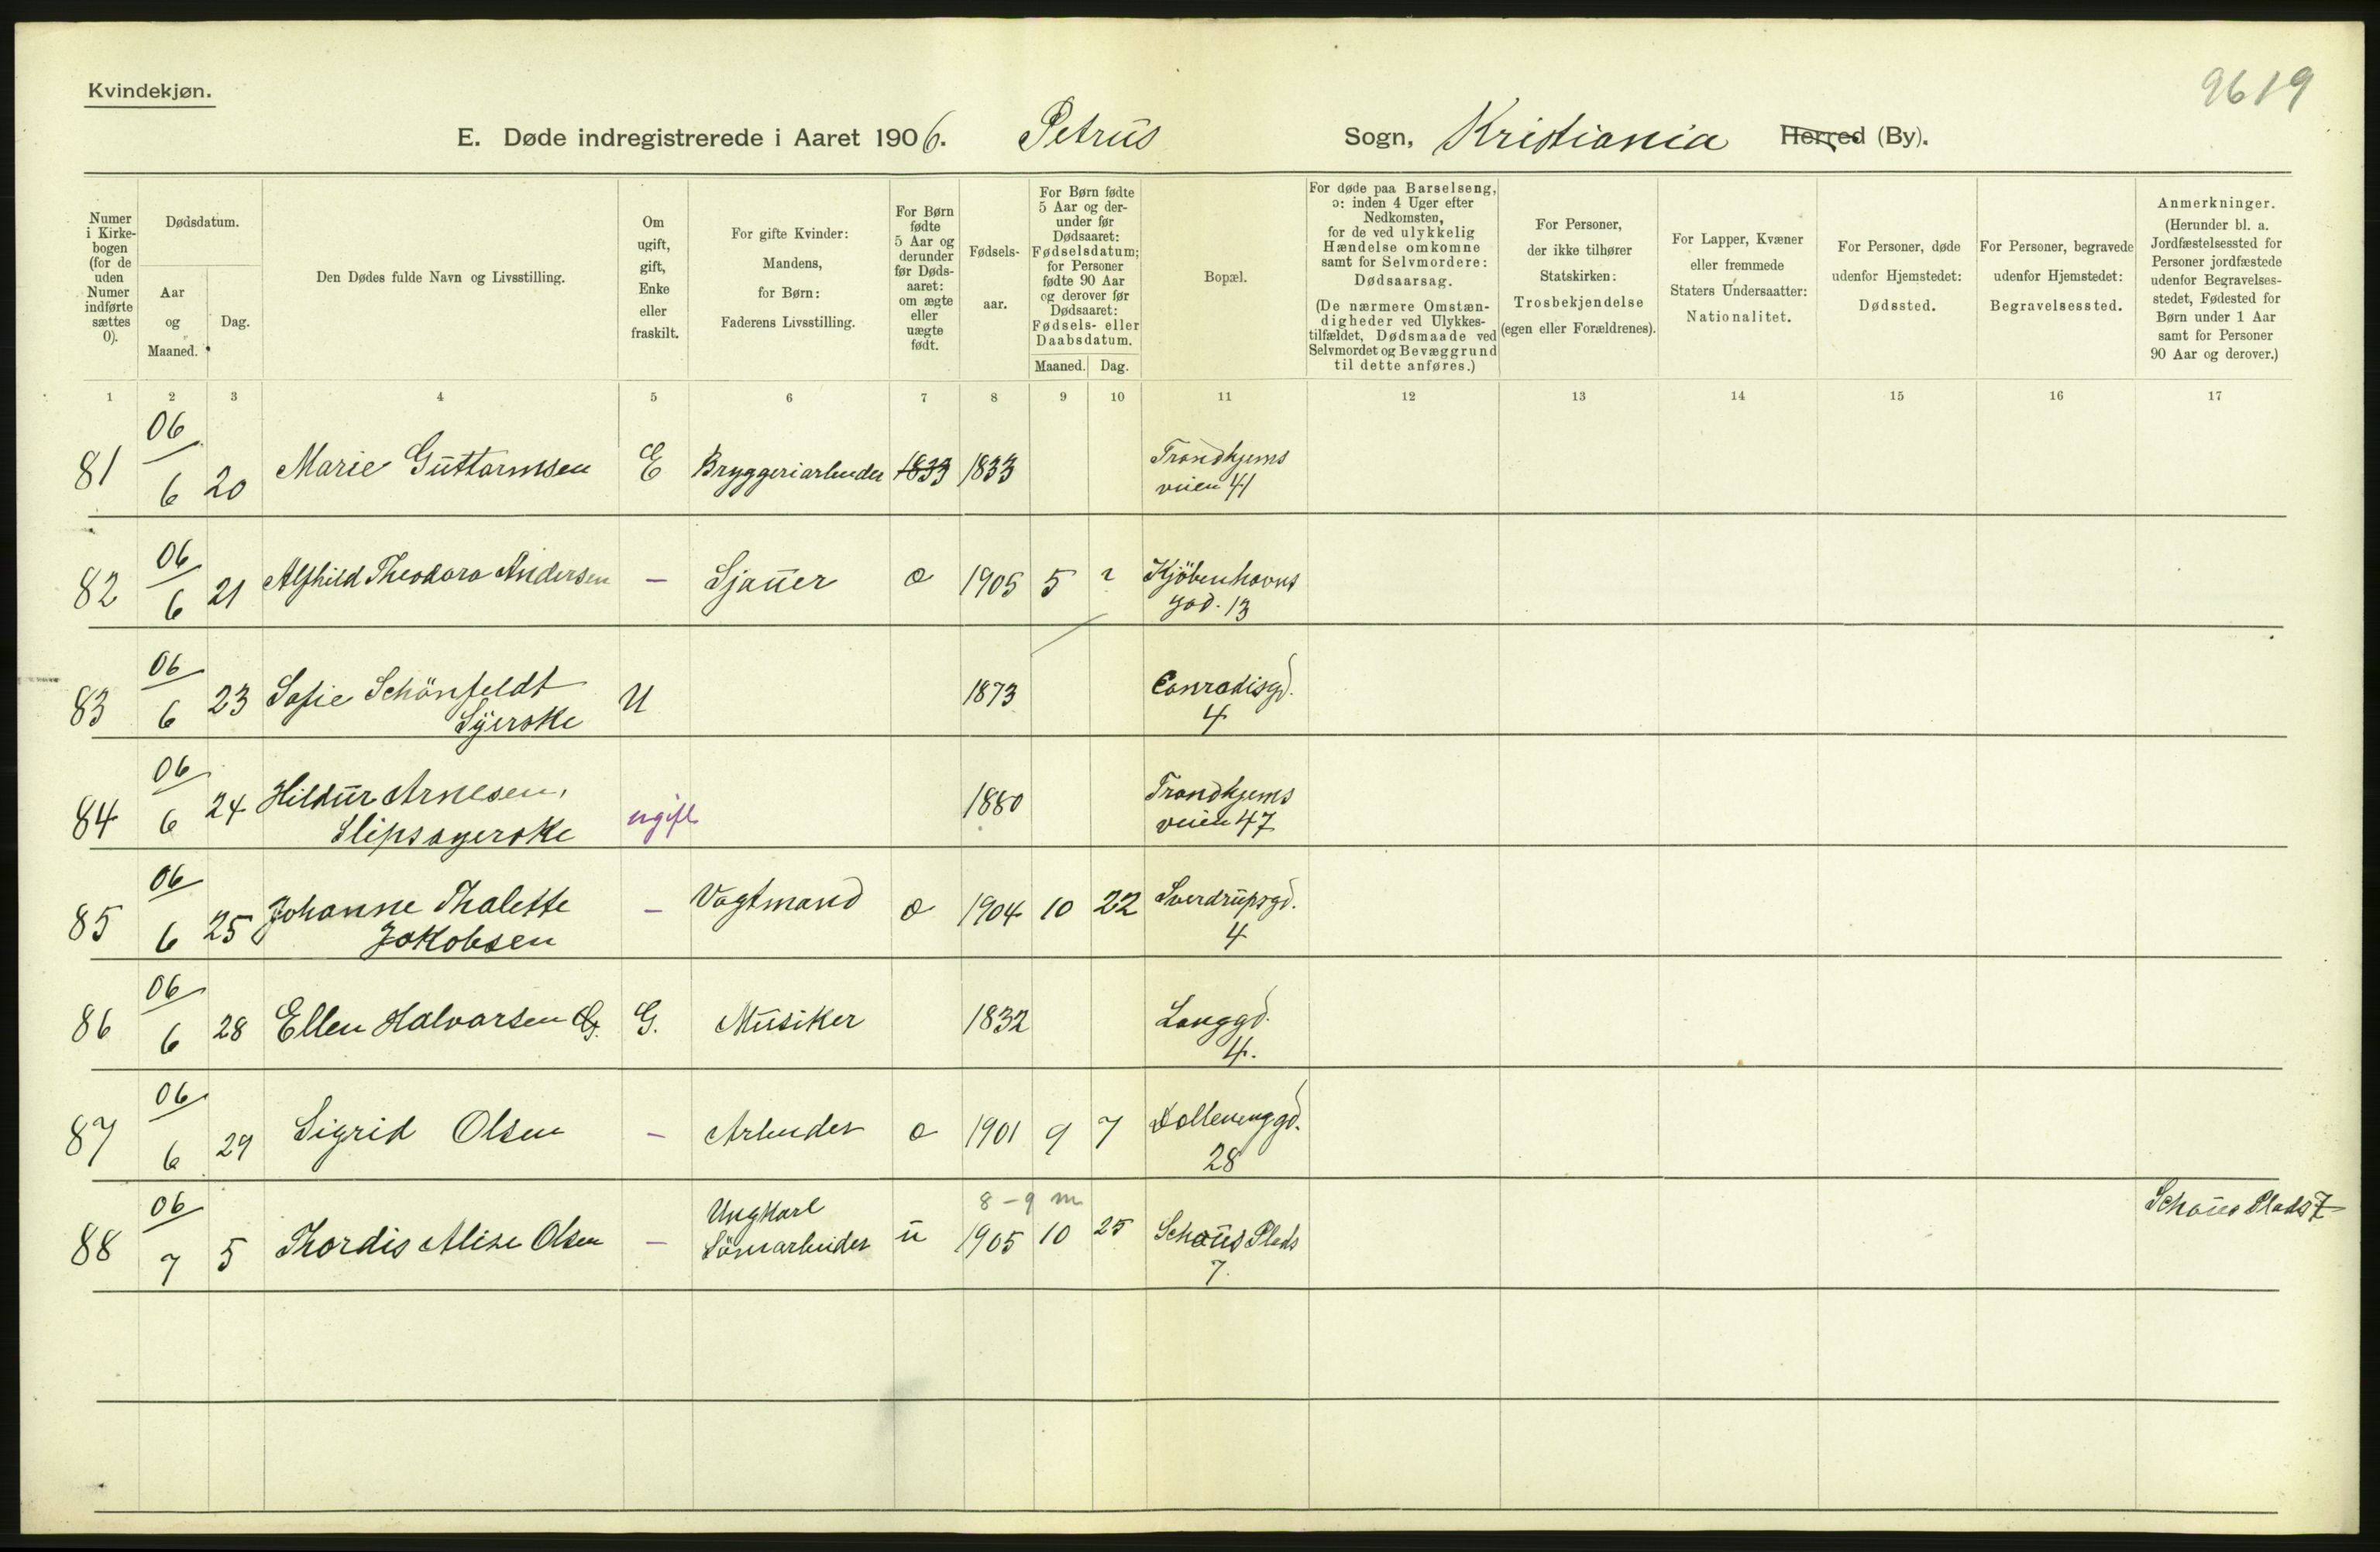 Kvindekjøn.
9619
E. Døde indregistrerede i Aaret 1906. Petrus Sogn, Kristiania Herred (By).
Numer i Kirke-bogen (for de uden Numer indførte sættes 0).
Dødsdatum.
Aar og Maaned.
Dag.
Den Dødes fulde Navn og Livsstilling.
Om ugift, gift, Enke eller fraskilt.
For gifte Kvinder: Mandens, for Børn: Faderens Livsstilling.
For Børn fødte 5 Aar og derunder før Døds-aaret: om ægte eller uægte født.
Fødsels-aar.
For Børn fødte 5 Aar og der-under før Dødsaaret: Fødselsdatum; for Personer fødte 90 Aar og derover før Dødsaaret: Fødsels- eller Daabsdatum.
Maaned. Dag.
Bopæl.
For døde paa Barselseng, ɔ: inden 4 Uger efter Nedkomsten, for de ved ulykkelig Hændelse omkomne samt for Selvmordere: Dødsaarsag. (De nærmere Omstæn-digheder ved Ulykkes-tilfældet, Dødsmaade ved Selvmordet og Bevæggrund til dette anføres.)
For Personer, der ikke tilhører Statskirken: Trosbekjendelse (egen eller Forældrenes).
For Lapper, Kvæner eller fremmede Staters Undersaatter: Nationalitet.
For Personer, døde udenfor Hjemstedet: Dødssted.
For Personer, begravede udenfor Hjemstedet: Begravelsessted.
Anmerkninger. (Herunder bl. a. Jordfæstelsessted for Personer jordfæstede udenfor Begravelses-stedet, Fødested for Børn under 1 Aar samt for Personer 90 Aar og derover.)
1 2 3 4 5 6 7 8 9 10 11 12 13 14 15 16 17
81 06/6 20 Marie Guttormsen E Bryggeriarbeider 1833 1833 Trondhjems
veien 41
82 06/6 21 Alfhild Theodora Andersen – Sjauer æ 1905 5 2 Kjöbenhavns
gad. 13
83 06/6 23 Sofie Schönfeldt U 1873 Conradisgd.
Syerske 4
84 06/6 24 Hildur Arnesen, ugift 1880 Trondhjems
Slipssyerske veien 47
85 06/6 25 Johanne Thalette – Vagtmand æ 1904 10 22 Sverdrupsgd.
Jakobsen 4
86 06/6 28 Ellen Halvorsen G. G. Musiker 1832 Langgd.
4.
87 06/6 29 Sigrid Olsen – Arbeider æ 1901 9 7 Dællenenggd.
28
8–9 m
88 06/7 5 Thordis Alise Olsen – Ungkarl u 1905 10 25 Schous Plads Schous Plads 7
Sömarbeider 7.